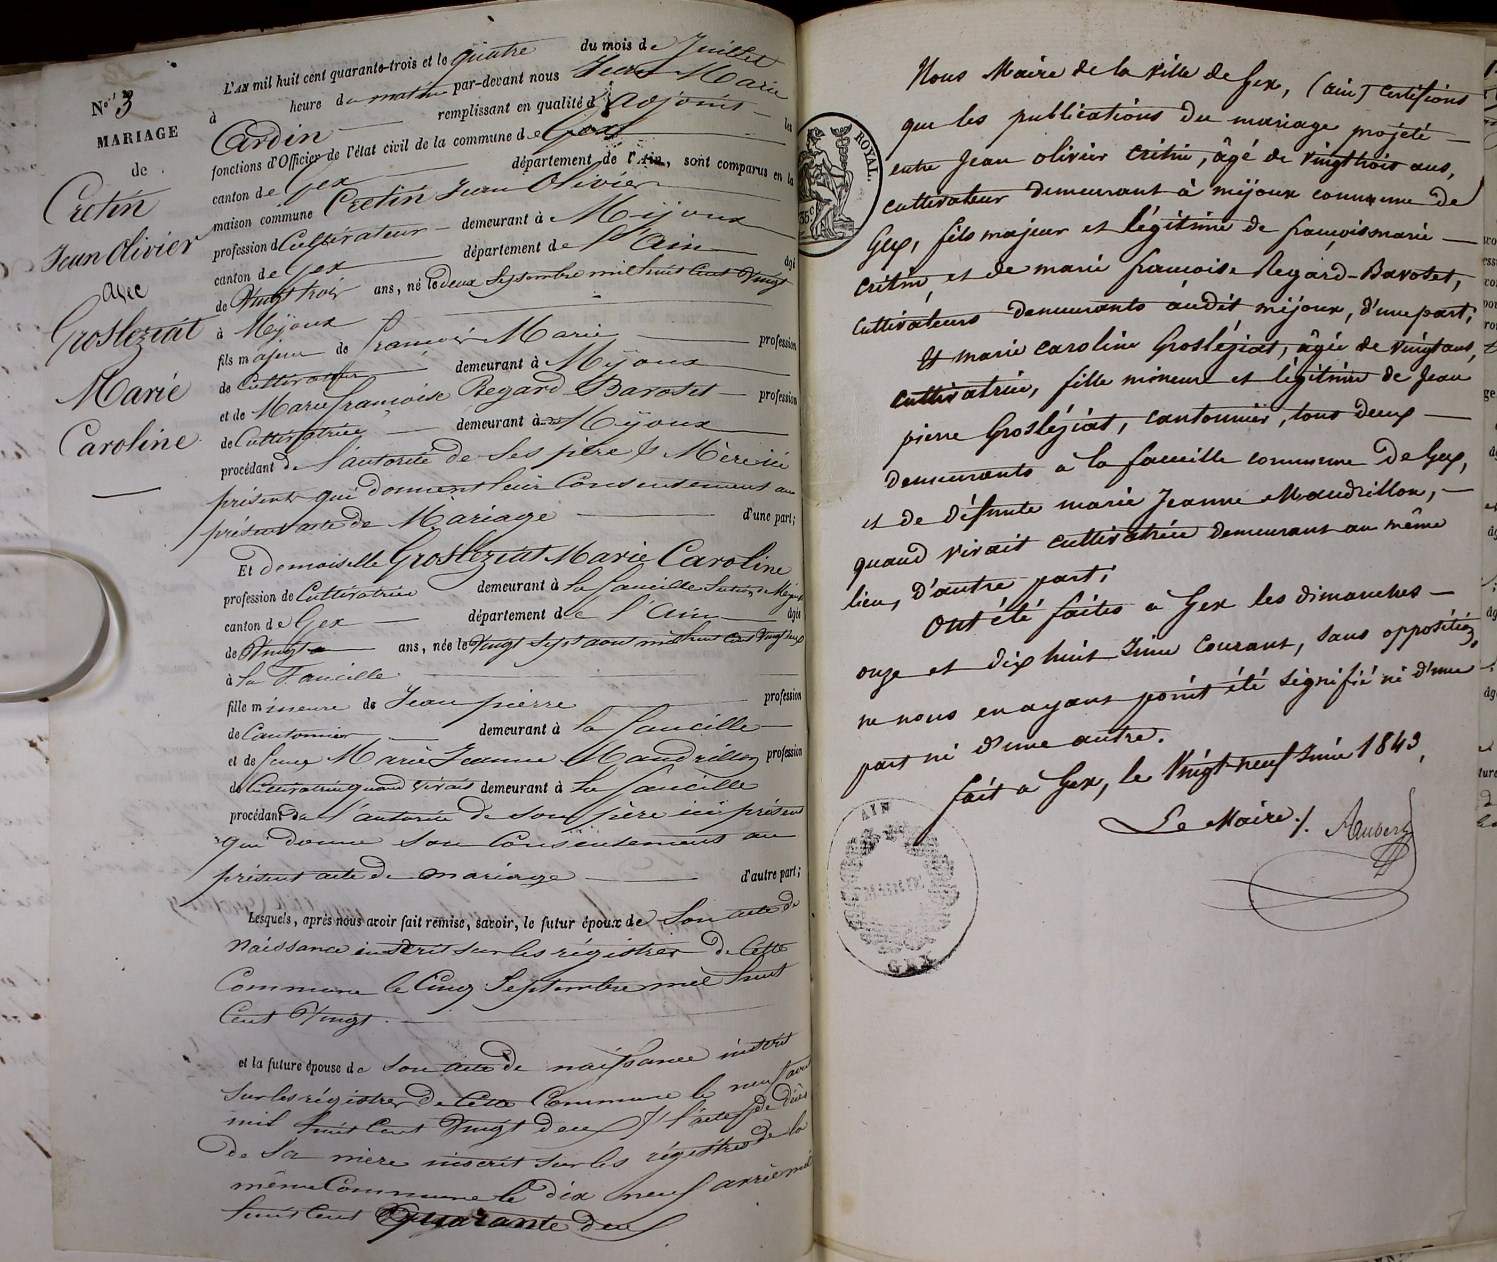 N.º 3
MARIAGE
de
Cretin
Jean Olivier
avec
Grosleziat
Marie
Caroline
L'AN mil huit cent quarante-trois et le quatre du mois de Juillet
à heure du matin par-devant nous Jean Marie
Cardin remplissant en qualité d'adjoint les
fonctions d'Officier de l'état civil de la commune de Gex
canton de Gex département de l'Ain, sont comparus en la
maison commune Cretin Jean Olivier
profession de Cultivateur demeurant à Mijoux
canton de Gex département de l'Ain âgé
de Vingt trois ans, né le deux Septembre mil huit Cent Vingt
à Mijoux
fils majeur de françois Marie profession
de Cultivateur demeurant à Mijoux
et de Marie françoise Regard-Barotet profession
de Cultivatrice demeurant à Mijoux
procédant de l'autorité de Ses père & Mère ici
présents qui donnent leur Consentement au
présent acte de Mariage d'une part;
Et demoiselle Grosleziat Marie Caroline
profession de Cultivatrice demeurant à la faucille
canton de Gex département de l'Ain âgée
de Vingt ans, née le Vingt Sept aout mil huit Cent Vingt deux
à la Faucille
fille mineure de Jean pierre profession
de Cantonnier demeurant à la faucille
et de feue Marie Jeanne Mandrillon profession
de Cultivatrice quand vivait demeurant à la faucille
procédant de l'autorité de Son père ici présent
qui donne son Consentement au
présent acte de mariage d'autre part;
Lesquels, après nous avoir fait remise, savoir, le futur époux de Son acte de
naissance inscrit sur les régistres de Cette
Commune le Cinq Septembre mil huit
Cent Vingt.
et la future épouse de son acte de naissance inscrit
sur les régistres de Cette Commune le neuf
mil huit Cent Vingt deux & l'acte de décès
de Sa mère inscrit sur les régistres de la
même Commune le dix neuf mil
huit Cent Quarante deux
Nous Maire de la ville de Gex, (ain) certifions
que les publications du mariage projeté
entre Jean olivier crétin, âgé de vingt trois ans,
cultivateur demeurant à mijoux commune de
Gex, fils majeur et légitime de françois marie
crétin, et de marie françoise Regard-Barotet,
cultivateurs demeurants audit mijoux, d'une part;
Et marie caroline Groslégiat, âgée de vingt ans,
cultivatrice, fille mineure et légitime de Jean
pierre Groslégiat, cantonnier, tous deux
demeurants à la faucille commune de Gex,
et de défunte marie Jeanne Mandrillon,
quand vivait cultivatrice demeurant au même
lieu, d'autre part;
Ont été faites à Gex les dimanches
onze et dix huit Juin courant, sans opposition,
ne nous en ayant point été signifié ni d'une
part ni d'une autre.
fait à Gex, le vingt neuf Juin 1843.
Le Maire /. Aubert
ROYAL.
35 c
AIN
MAIRIE
GEX